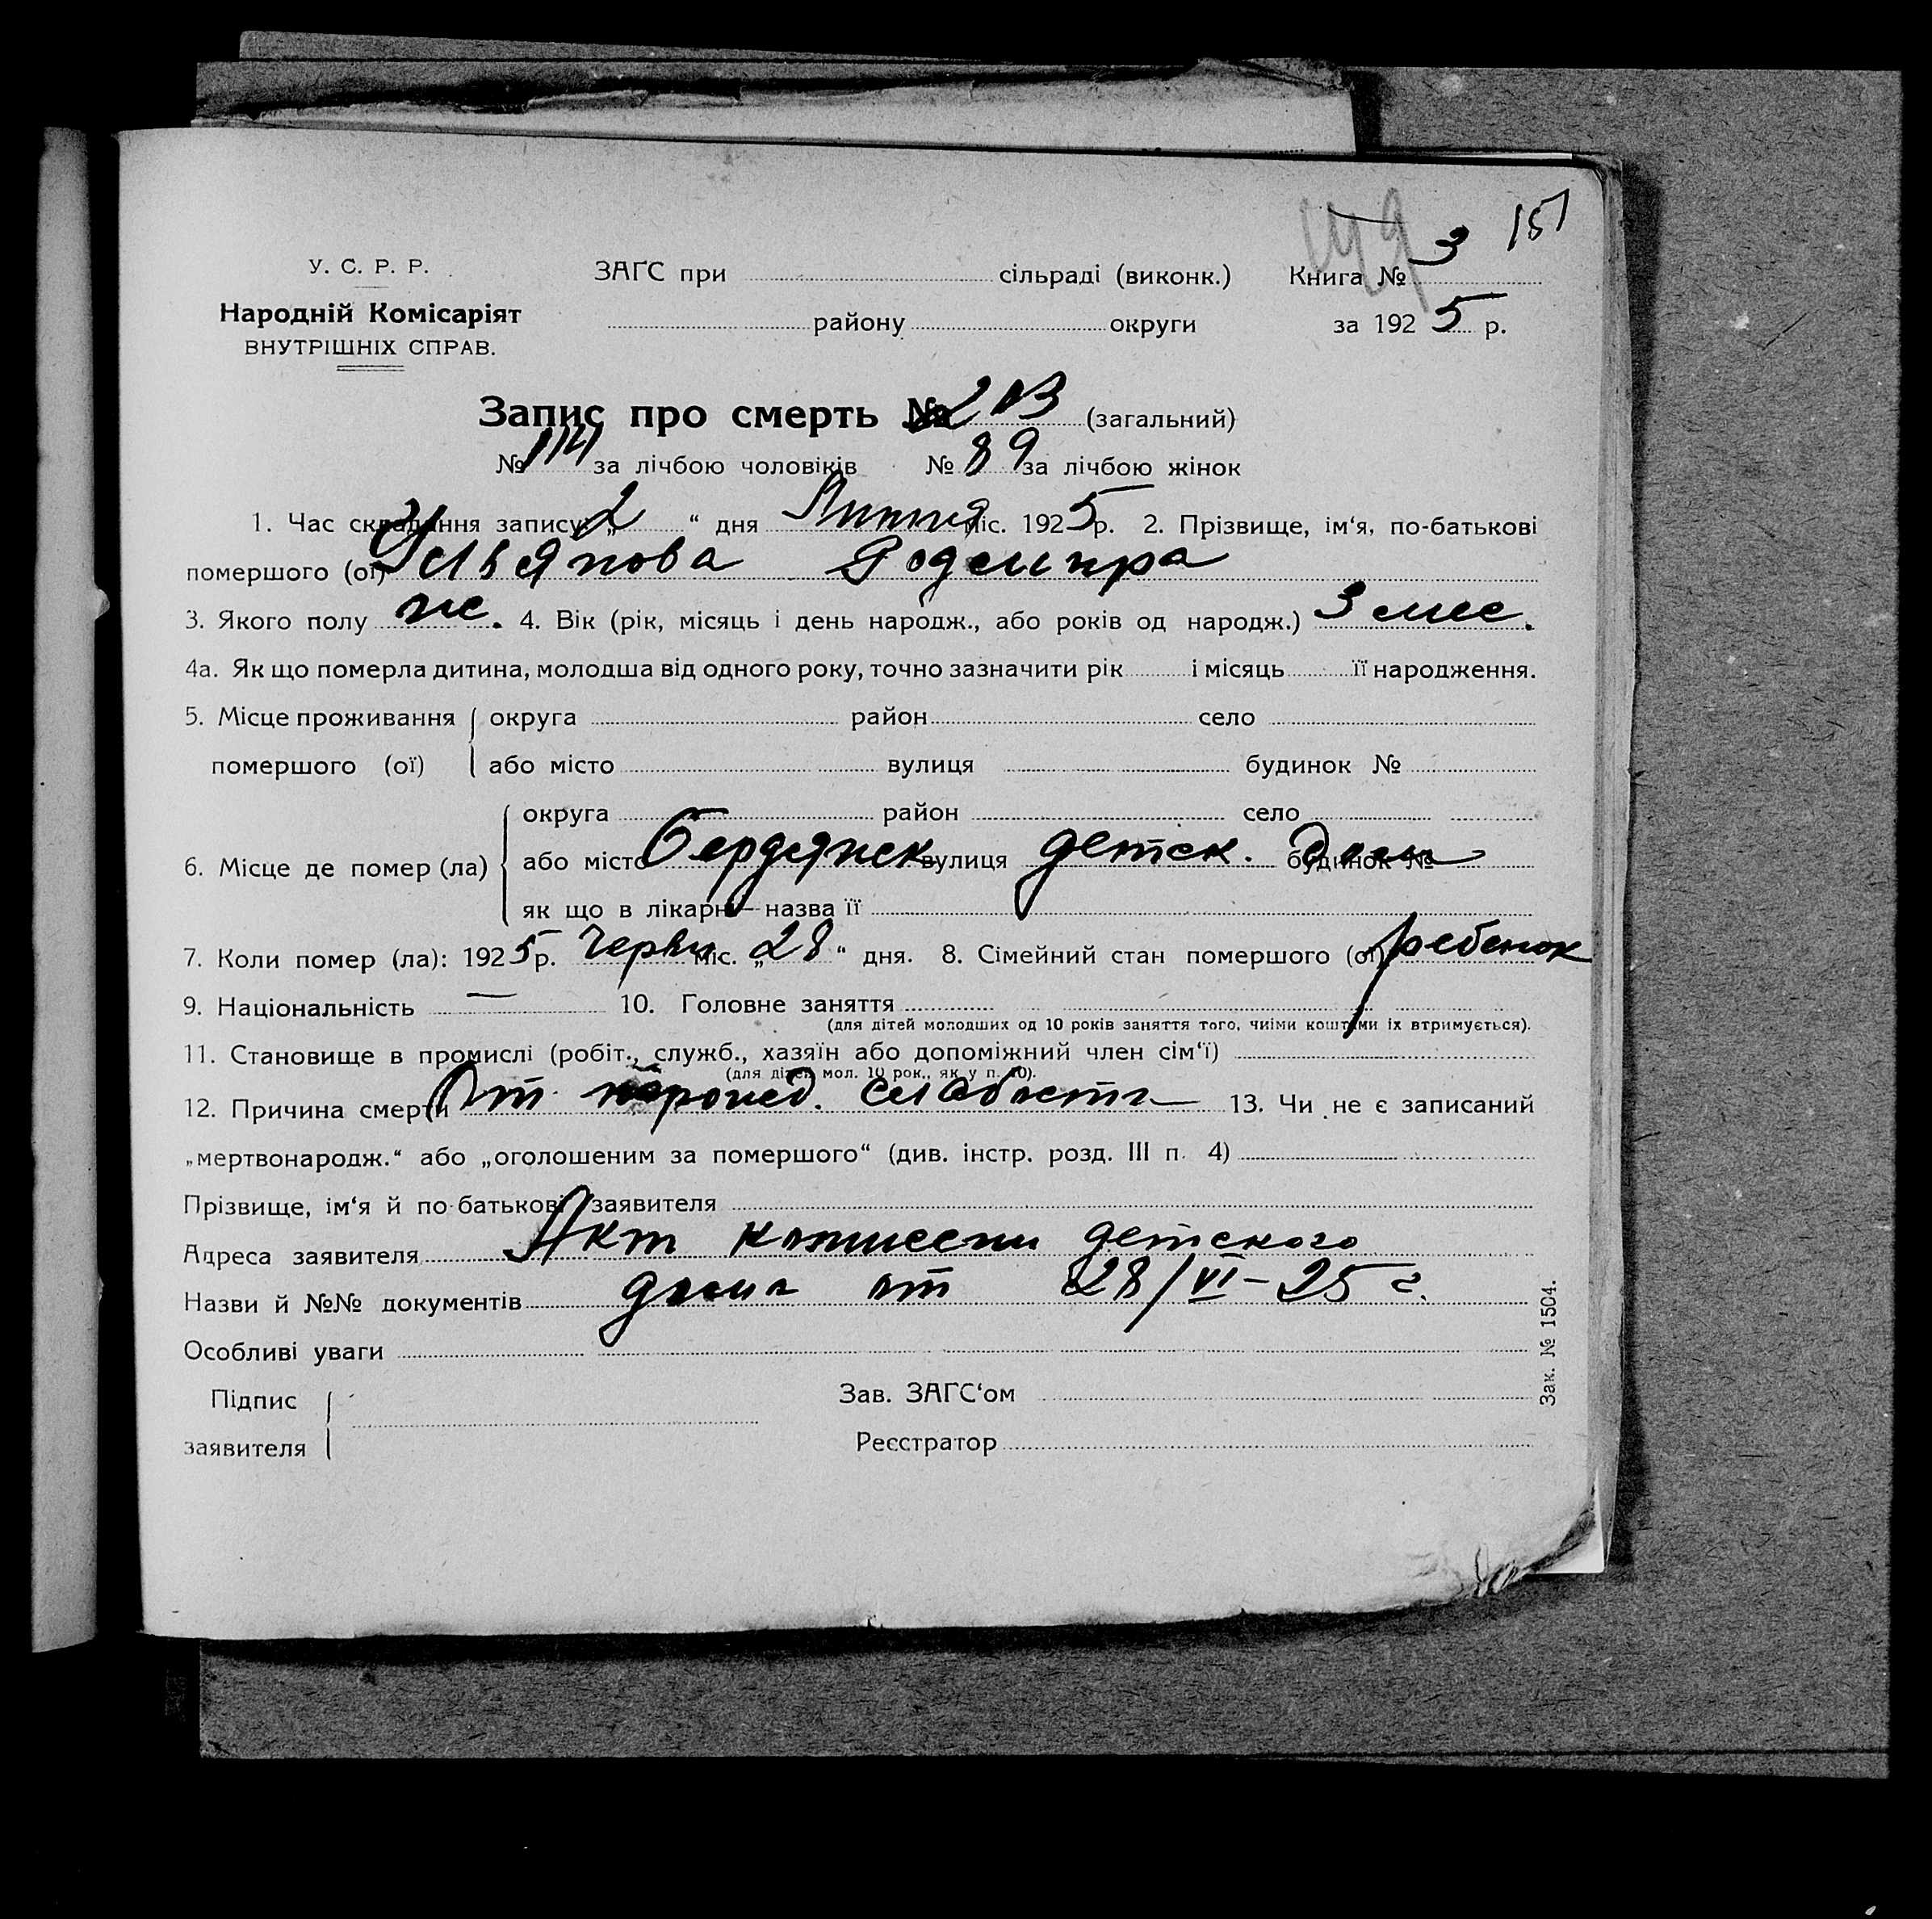 149 151
У. С. Р. Р. ЗАГС при сільраді (виконк.) Книга № 3
Народній Комісаріят району округи за 1925 р.
ВНУТРІШНІХ СПРАВ.
Запис про смерть № 203 (загальний)
№ 114 за лічбою чоловіків № 89 за лічбою жінок
1. Час складання запису: „2“ дня Липня міс. 1925 р. 2. Прізвище, ім‘я, по-батькові
помершого (ої) Ульянова
3. Якого полу ж. 4. Вік (рік, місяць і день народж., або років од народж.) 3 мес.
4а. Як що померла дитина, молодша від одного року, точно зазначити рік і місяць її народження.
5. Місце проживання округа район село
помершого (ої) або місто вулиця будинок №
округа район село
6. Місце де помер (ла) або місто Бердянск вулиця детск. будинок № Дом
як що в лікарні—назва її
7. Коли помер (ла): 1925 р. Червн міс. „28“ дня. 8. Сімейний стан помершого (ої) ребенок
9. Національність — 10. Головне заняття
(для дітей молодших од 10 років заняття того, чиїми коштами їх втримується).
11. Становище в промислі (робіт., служб., хазяїн або допоміжний член сім‘ї)
(для дітей мол. 10 рок., як у п. 10).
12. Причина смерти От слабости 13. Чи не є записаний
„мертвонародж.“ або „оголошеним за помершого“ (див. інстр. розд. III п. 4)
Прізвище, ім‘я й по-батькові заявителя
Адреса заявителя Акт комиссии детского
Назви й №№ документів дома от 28/VI-25 г.
Особливі уваги
Підпис Зав. ЗАГС‘ом
заявителя Реєстратор
Зак. № 1504.